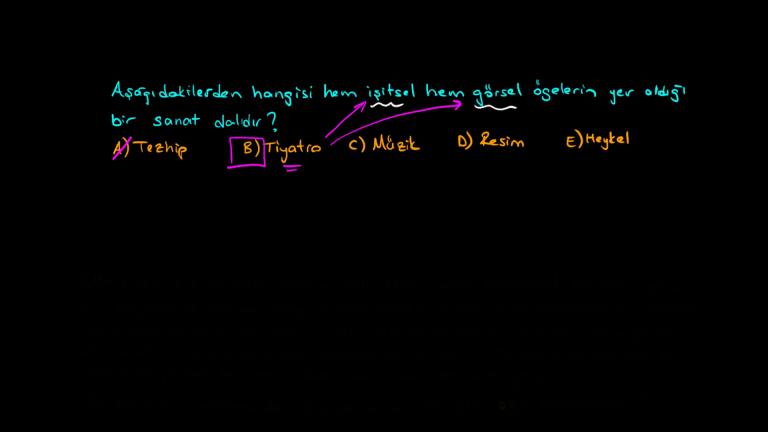 Aşağıdakilerden hangisi hem işitsel hem görsel ögelerin yer aldığı
bir sanat dalıdır?
A) Tezhip B) Tiyatro C) Müzik D) Resim E) Heykel